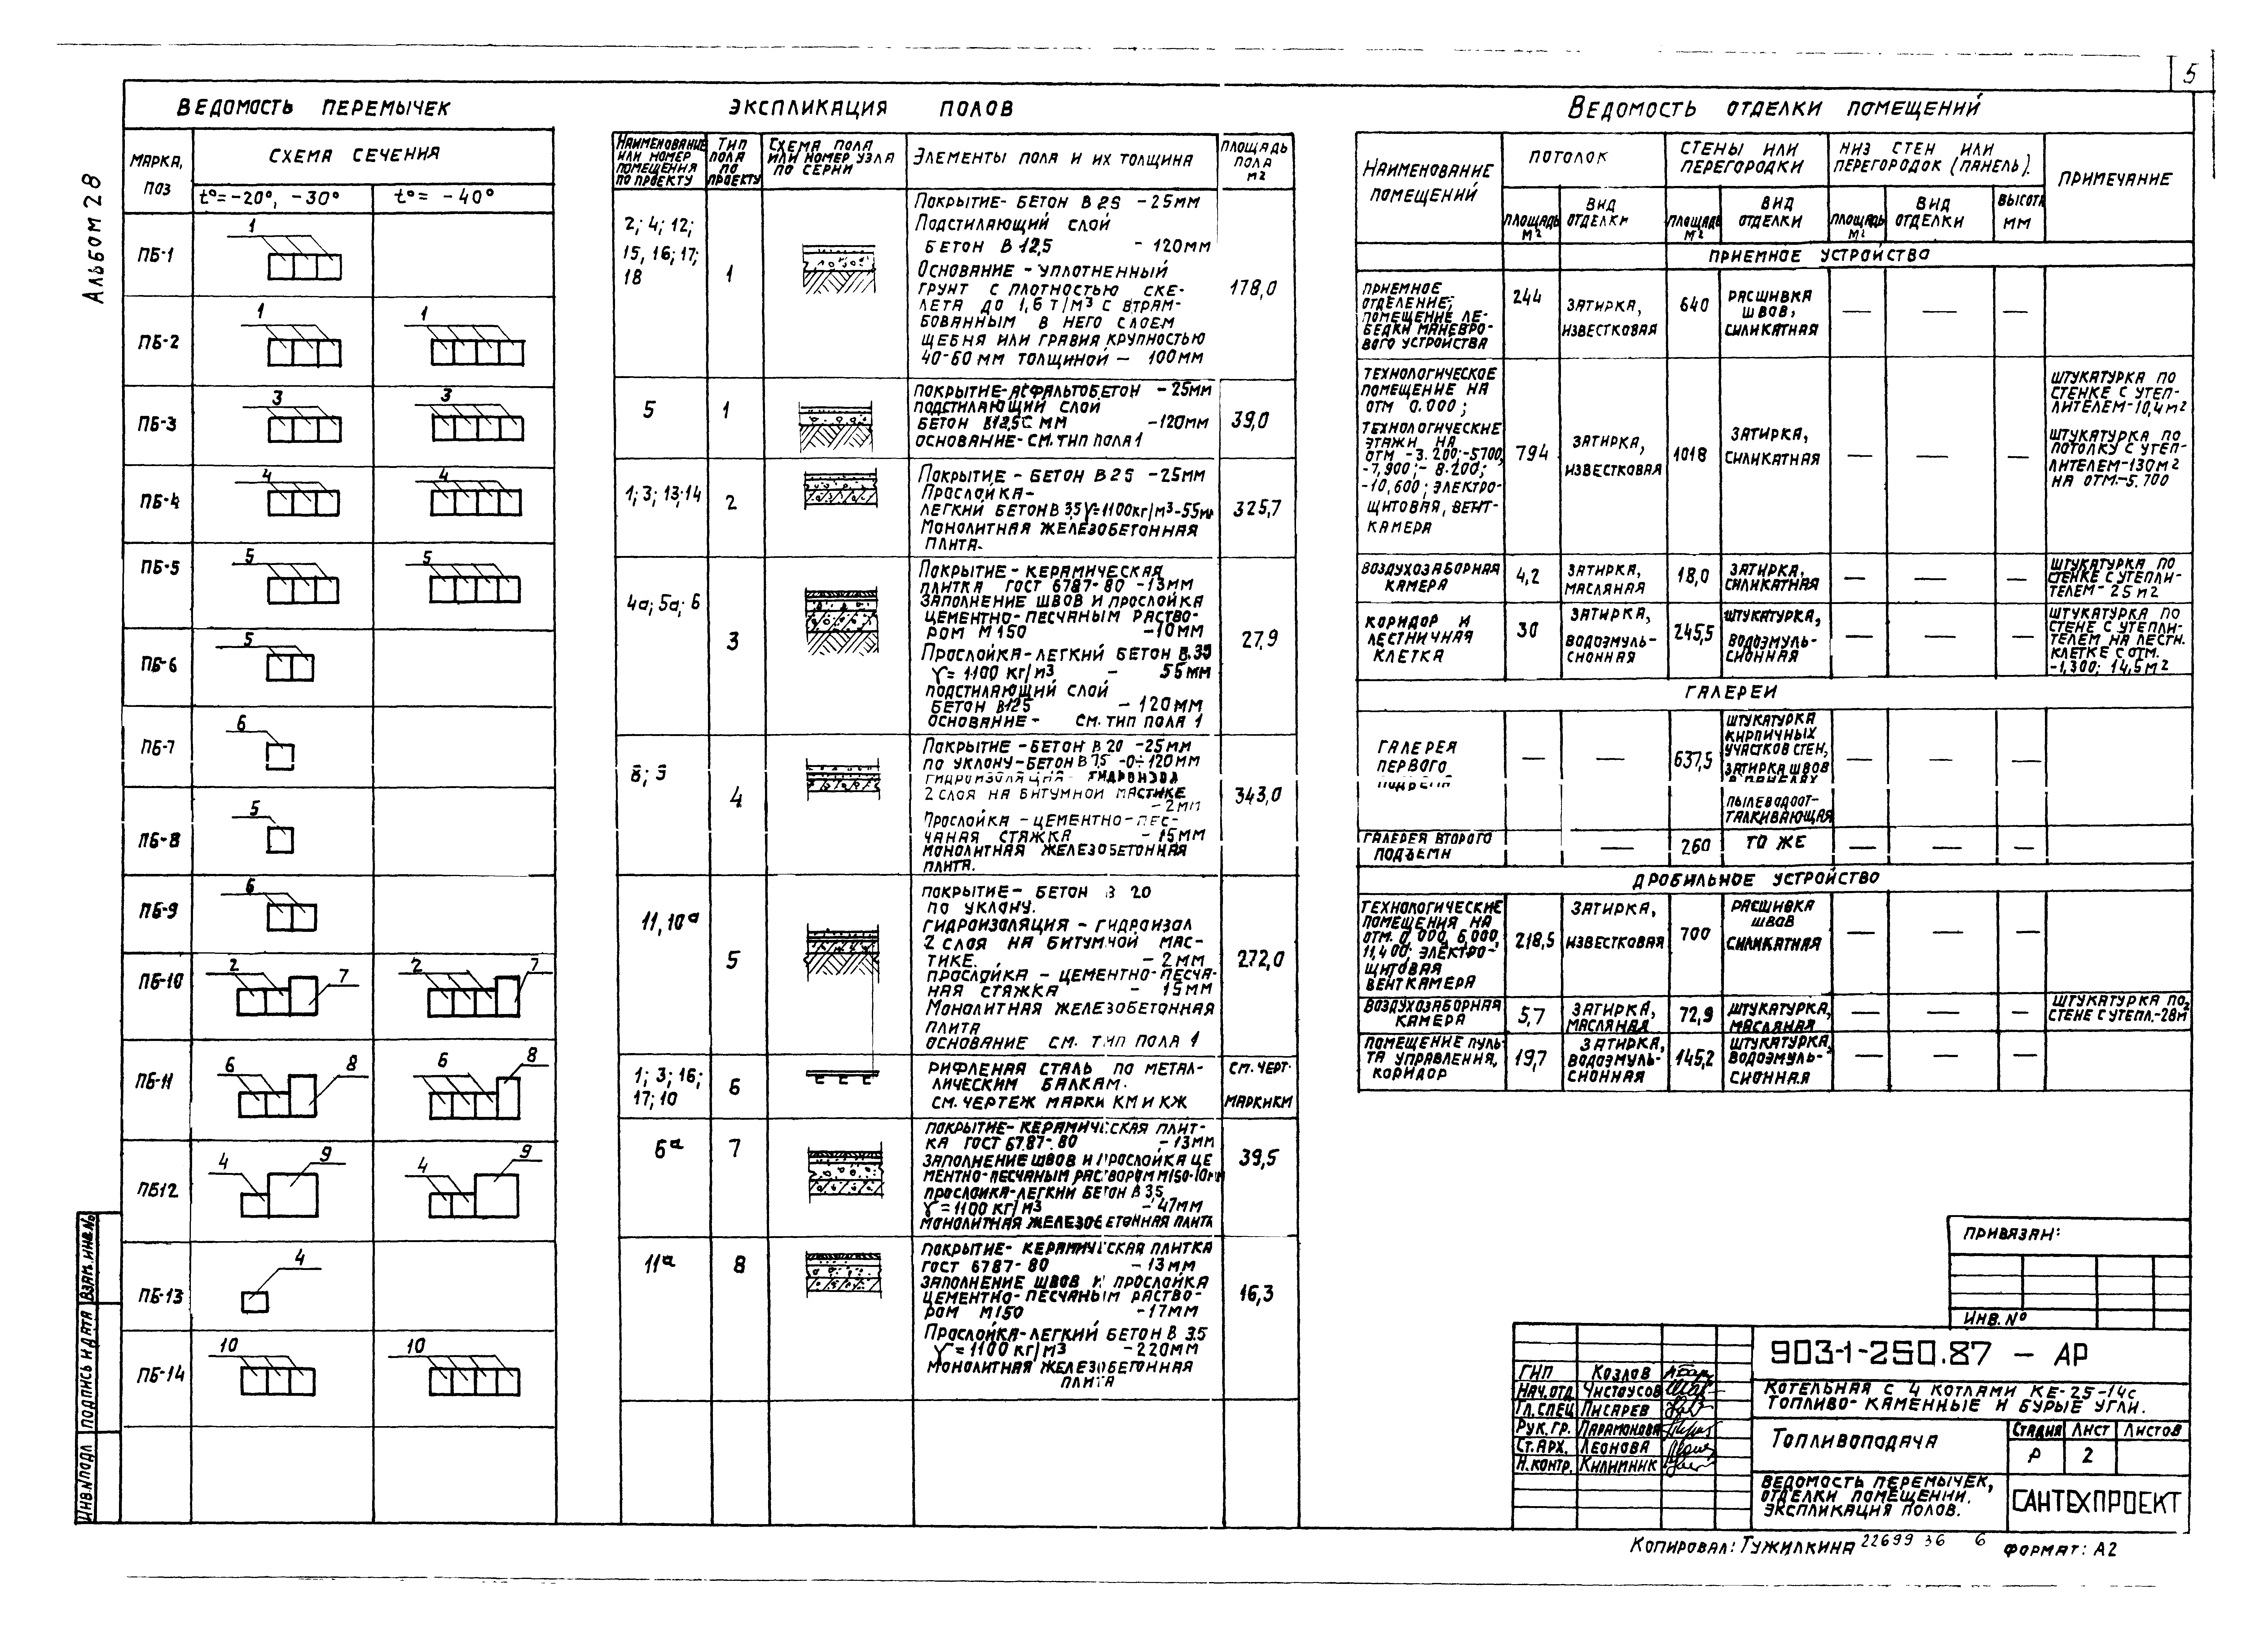 5
Альбом 28
Ведомость перемычек
Марка, поз
Схема сечения
t°= -20°, -30°
t°= -40°
ПБ-1
1
ПБ-2
1
1
ПБ-3
3
3
ПБ-4
4
4
ПБ-5
5
5
ПБ-6
5
ПБ-7
6
ПБ-8
5
ПБ-9
6
ПБ-10
2
7
2
7
ПБ-11
6
8
6
8
ПБ12
4
9
4
9
ПБ-13
4
ПБ-14
10
10
Экспликация полов
Наименование
или номер
помещения
по проекту
Тип
пола
по
проекту
Схема пола
или номер узла
по серии
Элементы пола и их толщина
Площадь
пола
м2
2; 4; 12;
15, 16; 17;
18
1
Покрытие- бетон В 25 -25мм
Подстилающий слой
бетон В 12,5 - 120мм
Основание - уплотненный
грунт с плотностью ске-
лета до 1,6 т/м3 с втрам-
бованным в него слоем
щебня или гравия крупностью
40-60 мм толщиной — 100мм
178,0
5
1
Покрытие-асфальтобетон - 25мм
подстилающий слой
бетон В12,5С мм -120мм
основание- см. тип пола 1
39,0
1; 3; 13;14
2
Покрытие - бетон В 25 -25мм
Прослойка-
легкий бетон В 3,5 γ=1100кг/м3-55мм
Монолитная железобетонная
плита.
325,7
4а; 5а; 6
3
Покрытие - керамическая
плитка ГОСТ 6787-80 -13мм
Заполнение швов и прослойка
цементно-песчаным раство-
ром М 150 -10мм
Прослойка-легкий бетон В.35
γ= 1100 кг/м3 - 55мм
подстилающий слой
бетон В125 - 120мм
основание- см. тип пола 1
27,9
8; 9
4
Покрытие - бетон В 20 -25мм
по уклону-бетон В 7,5 -0÷120мм
гидроизоляция- гидроизол
2 слоя на битумной мастике
-2мм
Прослойка - цементно-пес-
чаная стяжка - 15мм
монолитная железобетонная
плита.
343,0
11, 10а
5
покрытие- бетон В 20
по уклону.
гидроизоляция - гидроизол
2 слоя на битумной мас-
тике. - 2мм
прослойка - цементно-песча-
ная стяжка - 15мм
Монолитная железобетонная
плита
основание см. тип пола 1
272,0
1; 3; 16;
17; 10
6
рифленая сталь по метал-
лическим балкам.
см. чертеж марки КМ и КЖ
см. черт.
марки КМ
6а
7
покрытие- керамическая плит-
ка ГОСТ 6787-80 - 13мм
заполнение швов и прослойка це
ментно-песчаным раствором М150-10мм
прослойка-легкий бетон В 3,5
γ=1100 кг/м3 -47мм
монолитная железобетонная плита
39,5
11а
8
покрытие- керамическая плитка
ГОСТ 6787-80 - 13мм
заполнение швов и прослойка
цементно-песчаным раство-
ром М150 -17мм
Прослойка-легкий бетон В 3.5
γ=1100 кг/м3 -220мм
монолитная железобетонная
плита
16,3
Ведомость отделки помещений
Наименование
помещений
потолок
стены или
перегородки
низ стен или
перегородок (панель).
примечание
площадь
м2
вид
отделки
площадь
м2
вид
отделки
площадь
м2
вид
отделки
высота
мм
приемное устройство
приемное
отделение;
помещение ле-
бедки маневро-
вого устройства
244
затирка,
известковая
640
расшивка
швов,
силикатная
— — —
технологическое
помещение на
отм 0.000;
технологические
этажи на
отм -3.200;-5.700,
-7,900;- 8.200;
-10,600; электро-
щитовая, вент-
камера
794
затирка,
известковая
1018
затирка,
силикатная
— — —
штукатурка по
стенке с утеп-
лителем-10,4м2
штукатурка по
потолку с утеп-
лителем-130м2
на отм.-5.700
воздухозаборная
камера
4,2
затирка,
масляная
18,0
затирка,
силикатная
— — —
штукатурка по
стенке с утепли-
телем- 25м2
коридор и
лестничная
клетка
30
затирка,
водоэмуль-
сионная
245,5
штукатурка,
водоэмуль-
сионная
— — —
штукатурка по
стене с утепли-
телем на лестн.
клетке с отм.
-1,300; 14,5м2
галереи
галерея
первого
подъема
— —
637,5
штукатурка
кирпичных
участков стен,
затирка швов
в панелях
пылеводоот-
талкивающая
— — —
галерея второго
подъемн
—
260
то же
— — —
дробильное устройство
технологические
помещения на
отм. 0,000, 6,000,
11,400; электро-
щитовая
венткамера
218,5
затирка,
известковая
700
расшивка
швов
силикатная
— — —
воздухозаборная
камера
5,7
затирка,
масляная
72,9
штукатурка,
масляная
— — —
штукатурка по
стене с утепл.-28м2
помещение пуль-
та управления,
коридор
19,7
затирка,
водоэмуль-
сионная
145,2
штукатурка,
водоэмуль-
сионная
— — —
привязан:
инв. №
903-1-250.87 — АР
Котельная с 4 котлами КЕ-25-14с
топливо-каменные и бурые угли.
Топливоподача
Стадия Лист Листов
Р 2
ведомость перемычек,
отделки помещений.
экспликация полов.
САНТЕХПРОЕКТ
ГИП Козлов
Нач.отд. Чистоусов
Гл.спец Писарев
Рук.гр. Парамонова
Ст.арх. Леонова
Н.контр. Килимник
Инв.№подл Подпись и дата Взам.инв.№
Копировал: Тужилкина 22699 36 6 формат: А2